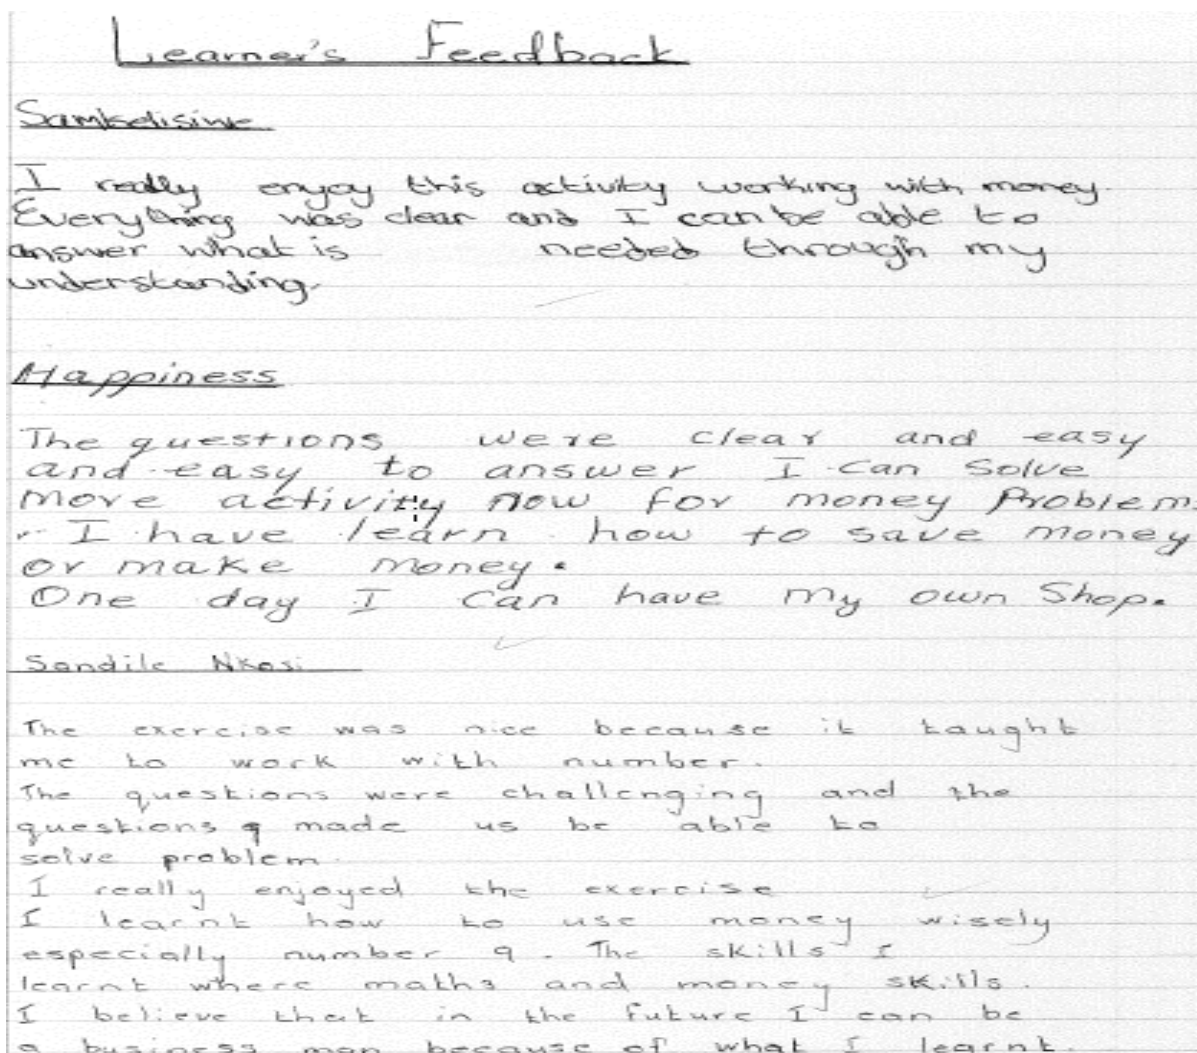 Learner's Feedback
Samkelisiwe
I really enjoy this activity working with money.
Everything was clear and I can be able to
answer what is needed through my
understanding.
Happiness
The questions were clear and easy
and easy to answer I can Solve
more activity now for money Problem
I have learn how to save money
or make money.
One day I can have my own Shop.
Sandile Nkosi
The exercise was nice because it taught
me to work with number.
The questions were challenging and the
questions made us be able to
solve problem.
I really enjoyed the exercise
I learnt how to use money wisely
especially number 9. The skills I
learnt where maths and money skills.
I believe that in the future I can be
a business man because of what I learnt.